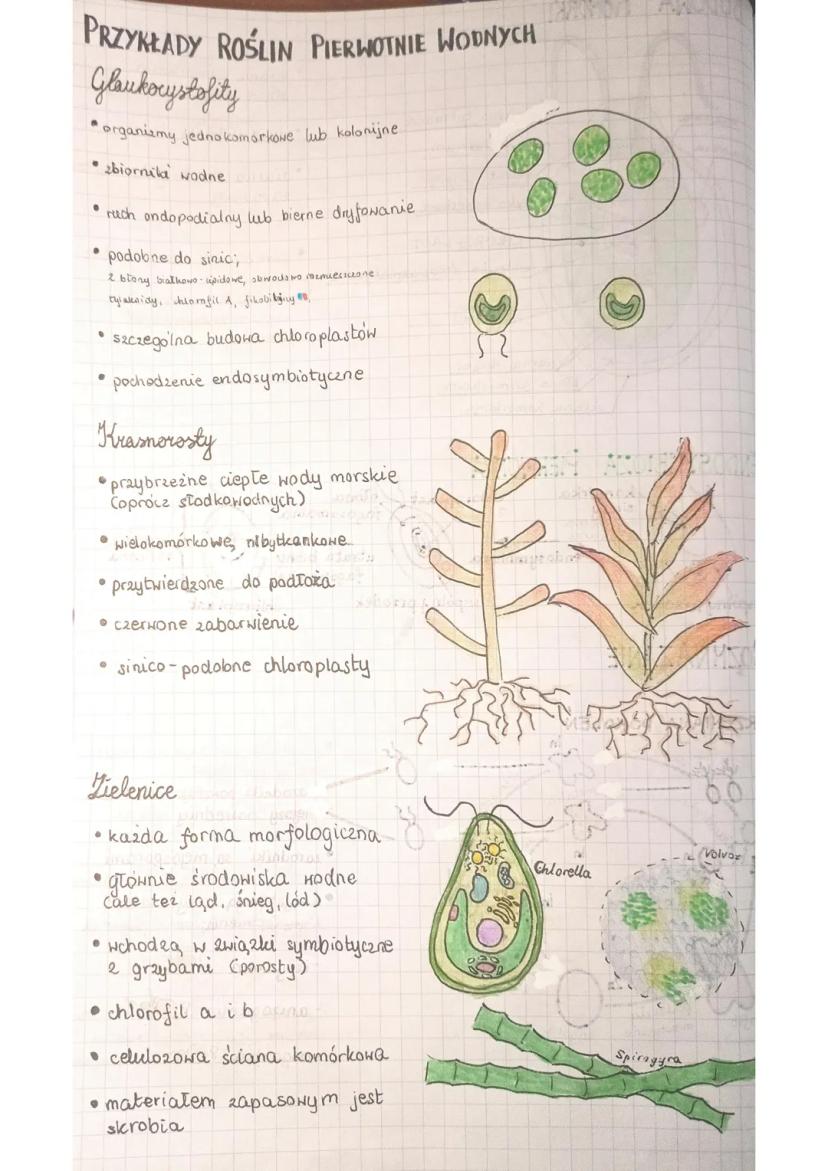 PRZYKŁADY ROŚLIN PIERWOTNIE WODNYCH
Glaukocystofity
• organizmy jednokomórkowe lub kolonijne
• zbiorniki wodne
• ruch ondopodialny lub bierne dryfowanie
• podobne do sinic;
2 błony białkowo-lipidowe, obwodowo rozmieszczone
tylakoidy, chlorofil A, fikobiliny
• szczególna budowa chloroplastów
• pochodzenie endosymbiotyczne
Krasnorosty
• przybrzeżne ciepłe wody morskie
(oprócz słodkowodnych)
• wielokomórkowe, nibytkankowe
• przytwierdzone do podłoża
• czerwone zabarwienie
• sinico-podobne chloroplasty
Zielenice
• każda forma morfologiczna
• głównie środowiska wodne
(ale też ląd, śnieg, lód)
Chlorella
Volvox
• wchodzą w związki symbiotyczne
z grzybami (porosty)
• chlorofil a i b
• celulozowa ściana komórkowa
Spirogyra
• materiałem zapasowym jest
skrobia